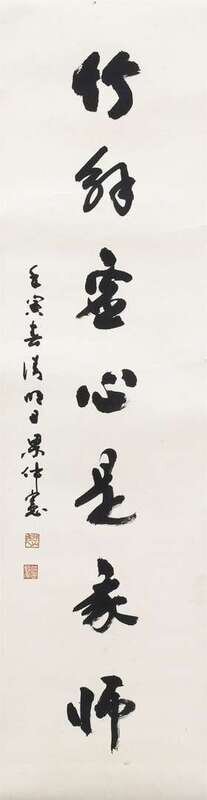 竹解虛心是我師
壬寅春清明日梁仲憲